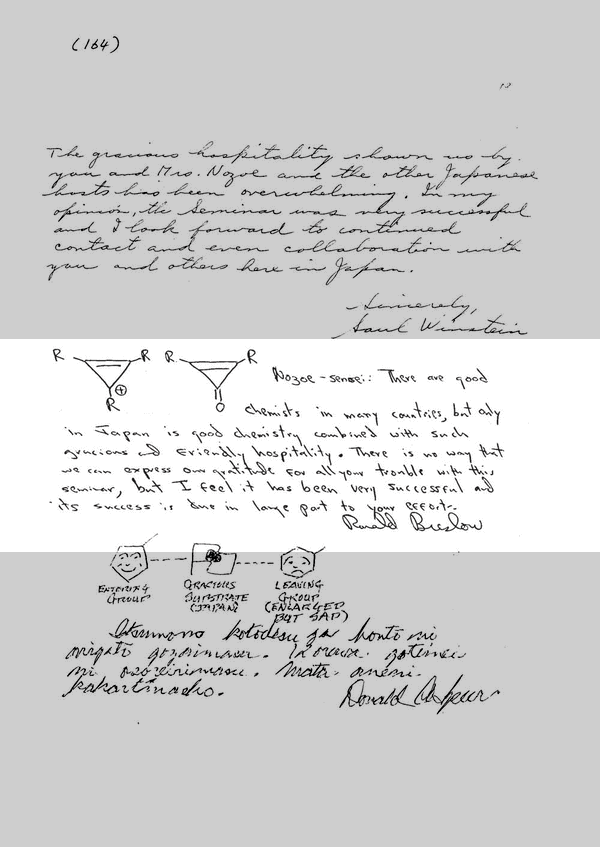 (164)
The gracious hospitality shown us by
you and Mrs. Nozoe and the other Japanese
hosts has been overwhelming. In my
opinion, the Seminar was very successful
and I look forward to continued
contact and even collaboration with
you and others here in Japan.
Sincerely,
Saul Winstein
R R R R
⊕
R O
Nozoe-sensei: There are good
chemists in many countries, but only
in Japan is good chemistry combined with such
gracious and friendly hospitality. There is no way that
we can express our gratitude for all your trouble with this
seminar, but I feel it has been very successful and
its success is due in large part to your efforts.
Ronald Breslow
ENTERING GROUP
GRACIOUS SUBSTRATE (JAPAN)
LEAVING GROUP (ENLARGED BUT SAD)
kotodesu ga honto ni
arigato gozaimasu.
ni mata
Donald